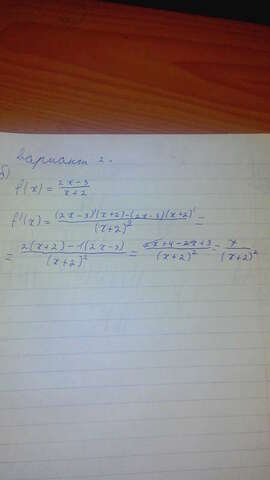 Вариант 2.
б)
f(x) = (2x-3)/(x+2)
f'(x) = ((2x-3)'(x+2)-(2x-3)(x+2)')/(x+2)² =
= (2(x+2)-1(2x-3))/(x+2)² = (2x+4-2x+3)/(x+2)² = 7/(x+2)²